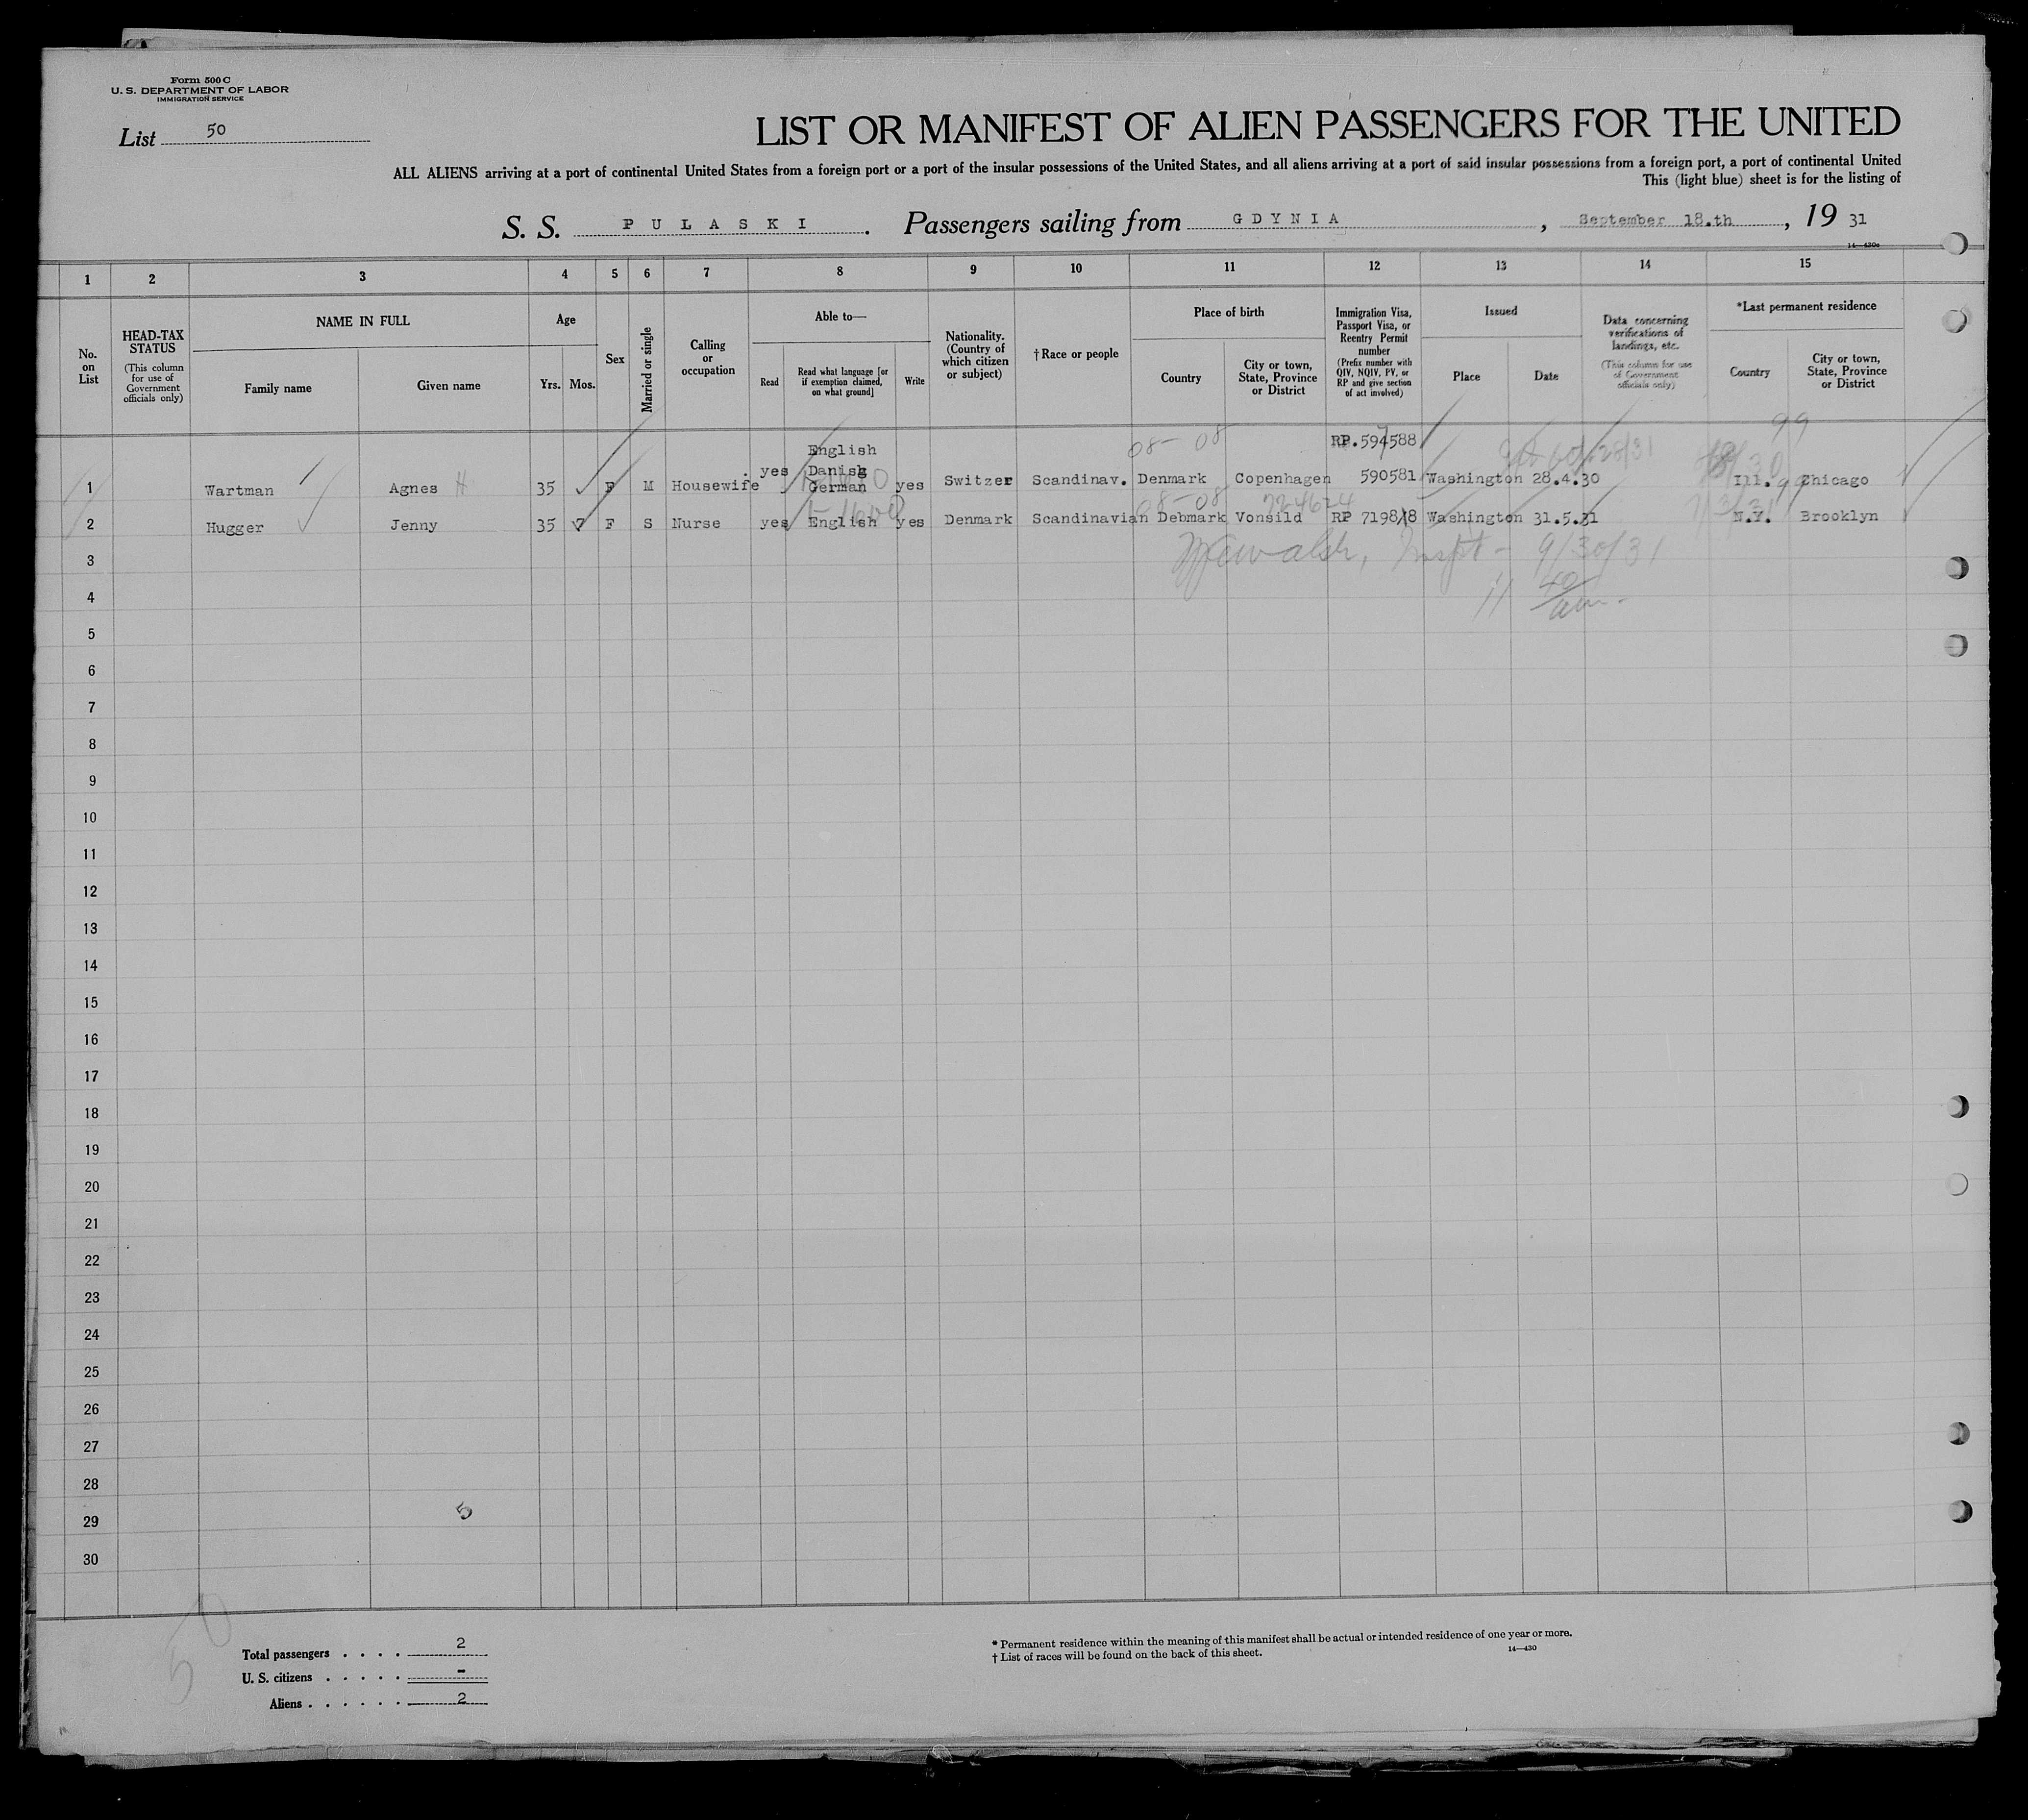 Form 500 C
U. S. DEPARTMENT OF LABOR
IMMIGRATION SERVICE
List 50
LIST OR MANIFEST OF ALIEN PASSENGERS FOR THE UNITED
ALL ALIENS arriving at a port of continental United States from a foreign port or a port of the insular possessions of the United States, and all aliens arriving at a port of said insular possessions from a foreign port, a port of continental United
This (light blue) sheet is for the listing of
S. S. PULASKI. Passengers sailing from GDYNIA, September 18.th, 19 31
14—430c
1 2 3 4 5 6 7 8 9 10 11 12 13 14 15
No. on List
HEAD-TAX STATUS (This column for use of Government officials only)
NAME IN FULL
Family name
Given name
Age
Yrs. Mos.
Sex
Married or single
Calling or occupation
Able to—
Read
Read what language [or if exemption claimed, on what ground]
Write
Nationality. (Country of which citizen or subject)
† Race or people
Place of birth
Country
City or town, State, Province or District
Immigration Visa, Passport Visa, or Reentry Permit number (Prefix number with QIV, NQIV, PV, or RP and give section of act involved)
Issued
Place
Date
Data concerning verifications of landings, etc. (This column for use of Government officials only)
*Last permanent residence
Country
City or town, State, Province or District
08- 08 99
English RP.594588
1 Wartman Agnes H 35 F M Housewife yes Danish German yes Switzer Scandinav. Denmark Copenhagen 590581 Washington 28.4.30 Ill. Chicago
08-08 724624 99
2 Hugger Jenny 35 7 F S Nurse yes English yes Denmark Scandinavian Debmark Vonsild RP 7198 8 Washington 31.5.31 N.Y. Brooklyn
3 9/30/31
4 11 40/am-
5
6
7
8
9
10
11
12
13
14
15
16
17
18
19
20
21
22
23
24
25
26
27
28
29 5
30
50
Total passengers . . . . 2
U. S. citizens . . . . . -
Aliens . . . . . . 2
* Permanent residence within the meaning of this manifest shall be actual or intended residence of one year or more.
† List of races will be found on the back of this sheet.
14—430